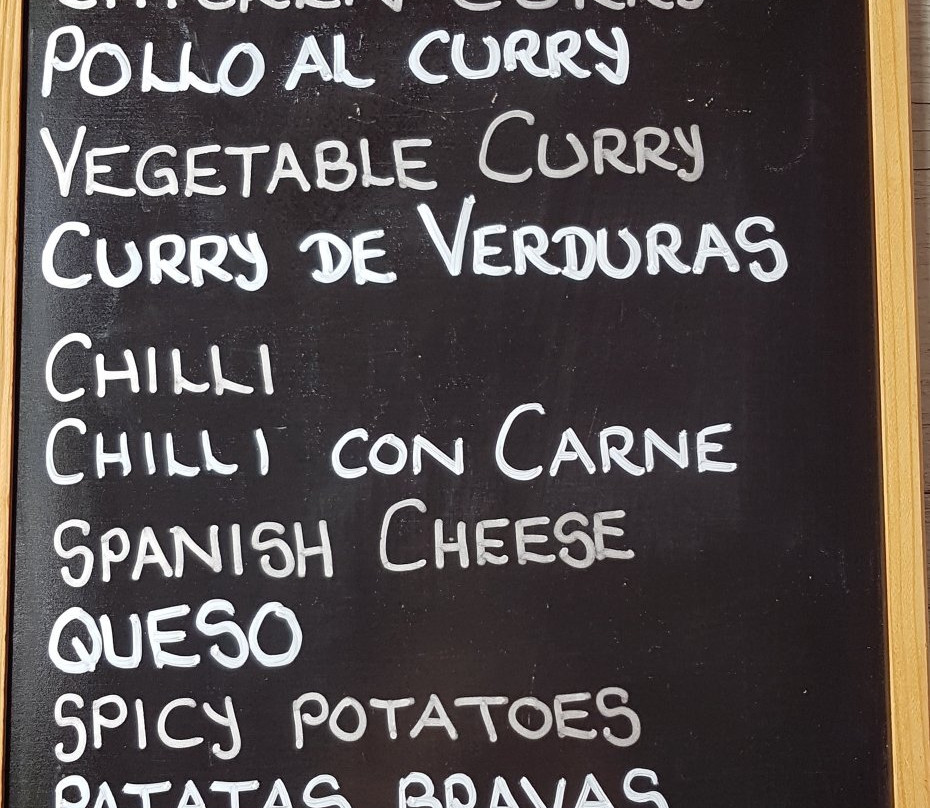 CHICKEN CURRY
POLLO AL CURRY
VEGETABLE CURRY
CURRY DE VERDURAS
CHILLI
CHILLI CON CARNE
SPANISH CHEESE
QUESO
SPICY POTATOES
PATATAS BRAVAS